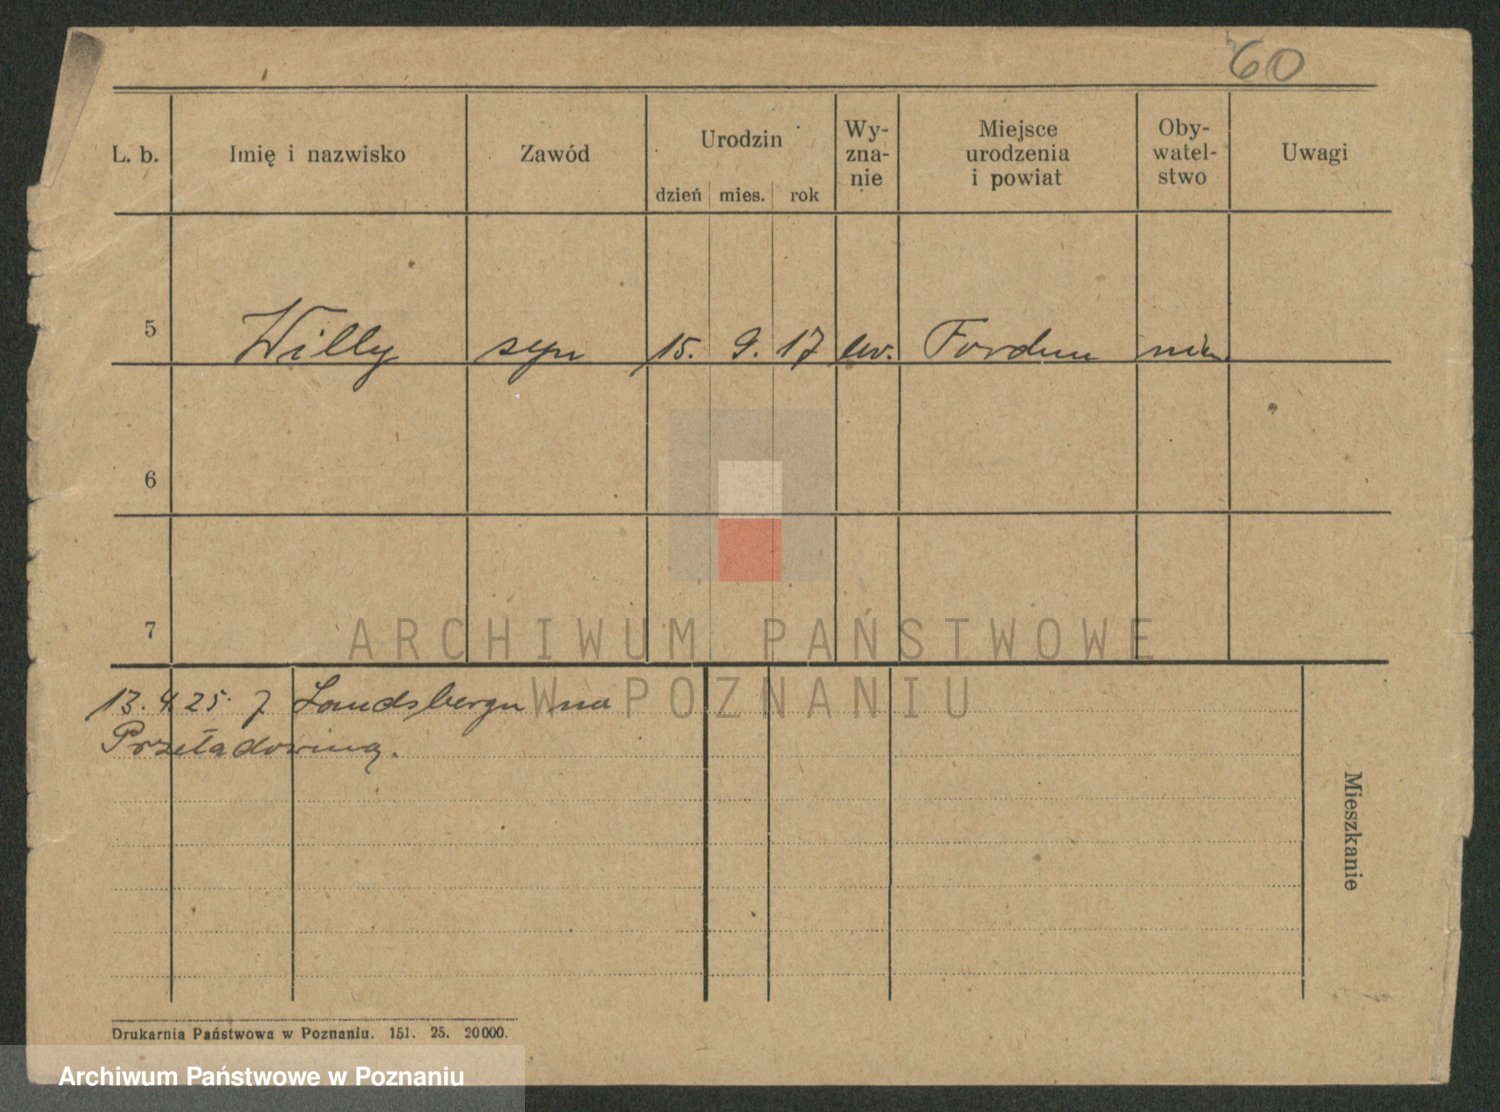 60
L. b. Imię i nazwisko Zawód Urodzin dzień mies. rok Wy-zna-nie Miejsce urodzenia i powiat Oby-watel-stwo Uwagi
5 Willy syn 15. 9. 17 ew. Fordon
6
7
ARCHIWUM PAŃSTWOWE
W POZNANIU
13.4.25. z Landsbergu na
Przeładowną.
Mieszkanie
Drukarnia Państwowa w Poznaniu. 151. 25. 20000.
Archiwum Państwowe w Poznaniu